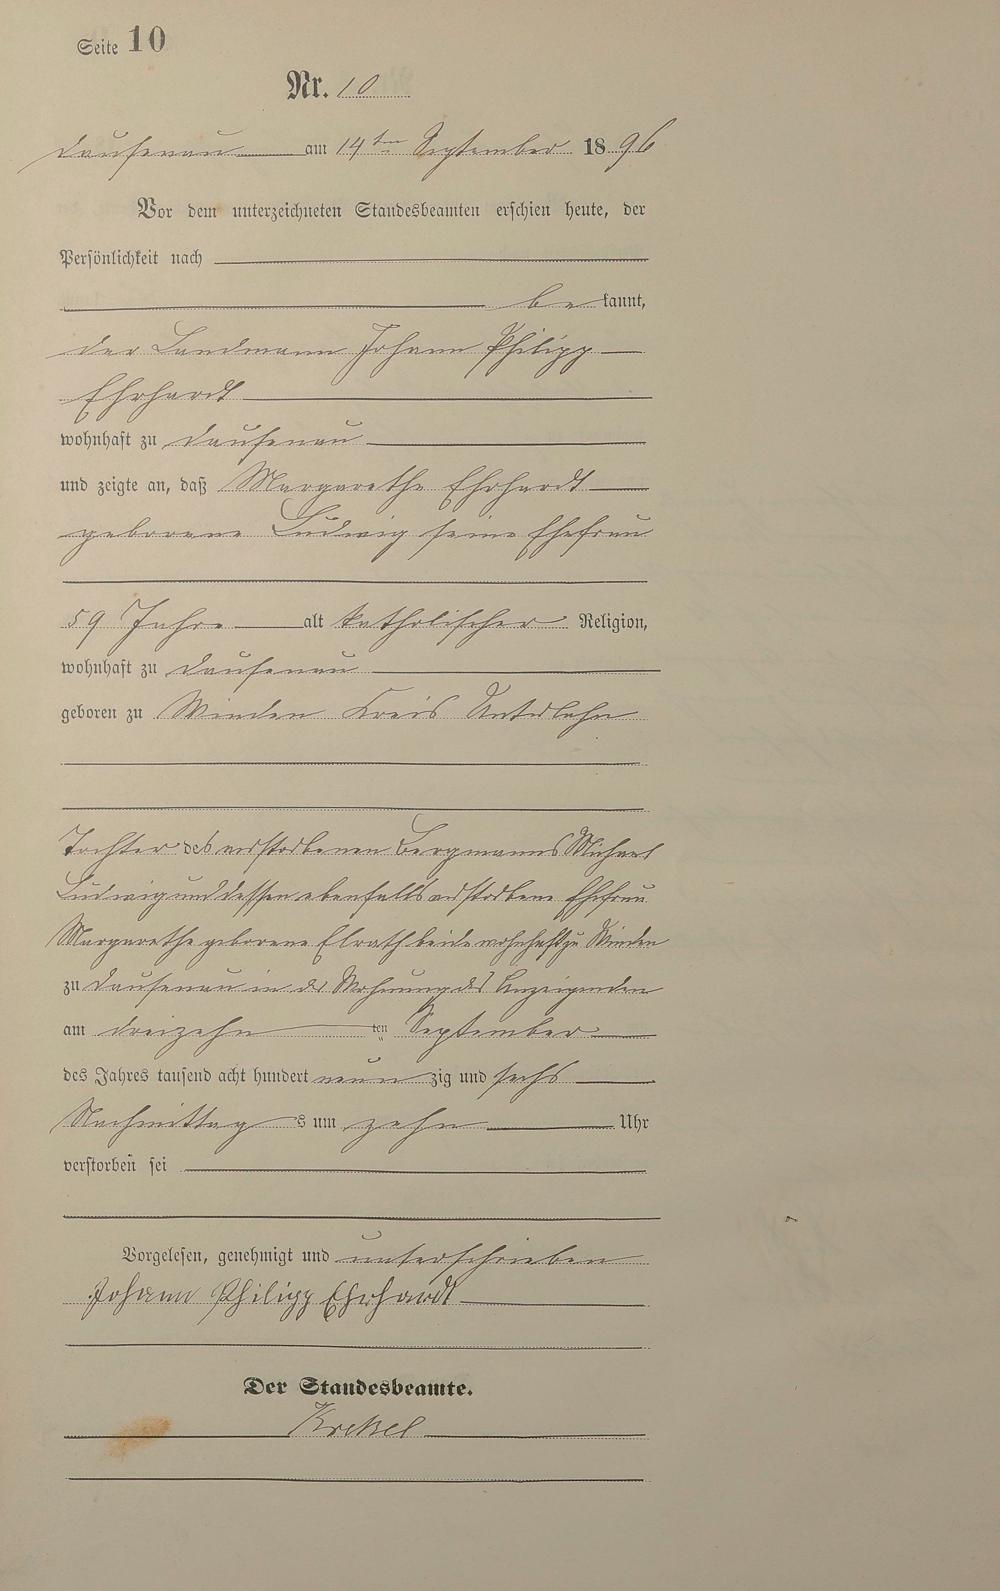 Seite 10
Nr. 10
Dausenau am 14ten September 1896
Vor dem unterzeichneten Standesbeamten erschien heute, der
Persönlichkeit nach
be kannt,
der Landmann Johann Philipp
Ehrhardt
wohnhaft zu Dausenau
und zeigte an, daß Margarethe Ehrhardt
geborene Ludwig seine Ehefrau
59 Jahre alt katholischer Religion,
wohnhaft zu Dausenau
geboren zu Winden Kreis Unterlahn
Tochter des verstorbenen Bergmanns Michael
Ludwig und dessen ebenfalls verstorbene Ehefrau
Margarethe geborene Elrath beide wohnhaft zu Winden
zu Dausenau in der Wohnung des Anzeigenden
am dreizehn ten September
des Jahres tausend acht hundert neun zig und sechs
Nachmittag s um zehn Uhr
verstorben sei
Vorgelesen, genehmigt und unterschrieben
Johann Philipp Ehrhardt
Der Standesbeamte.
Krekel